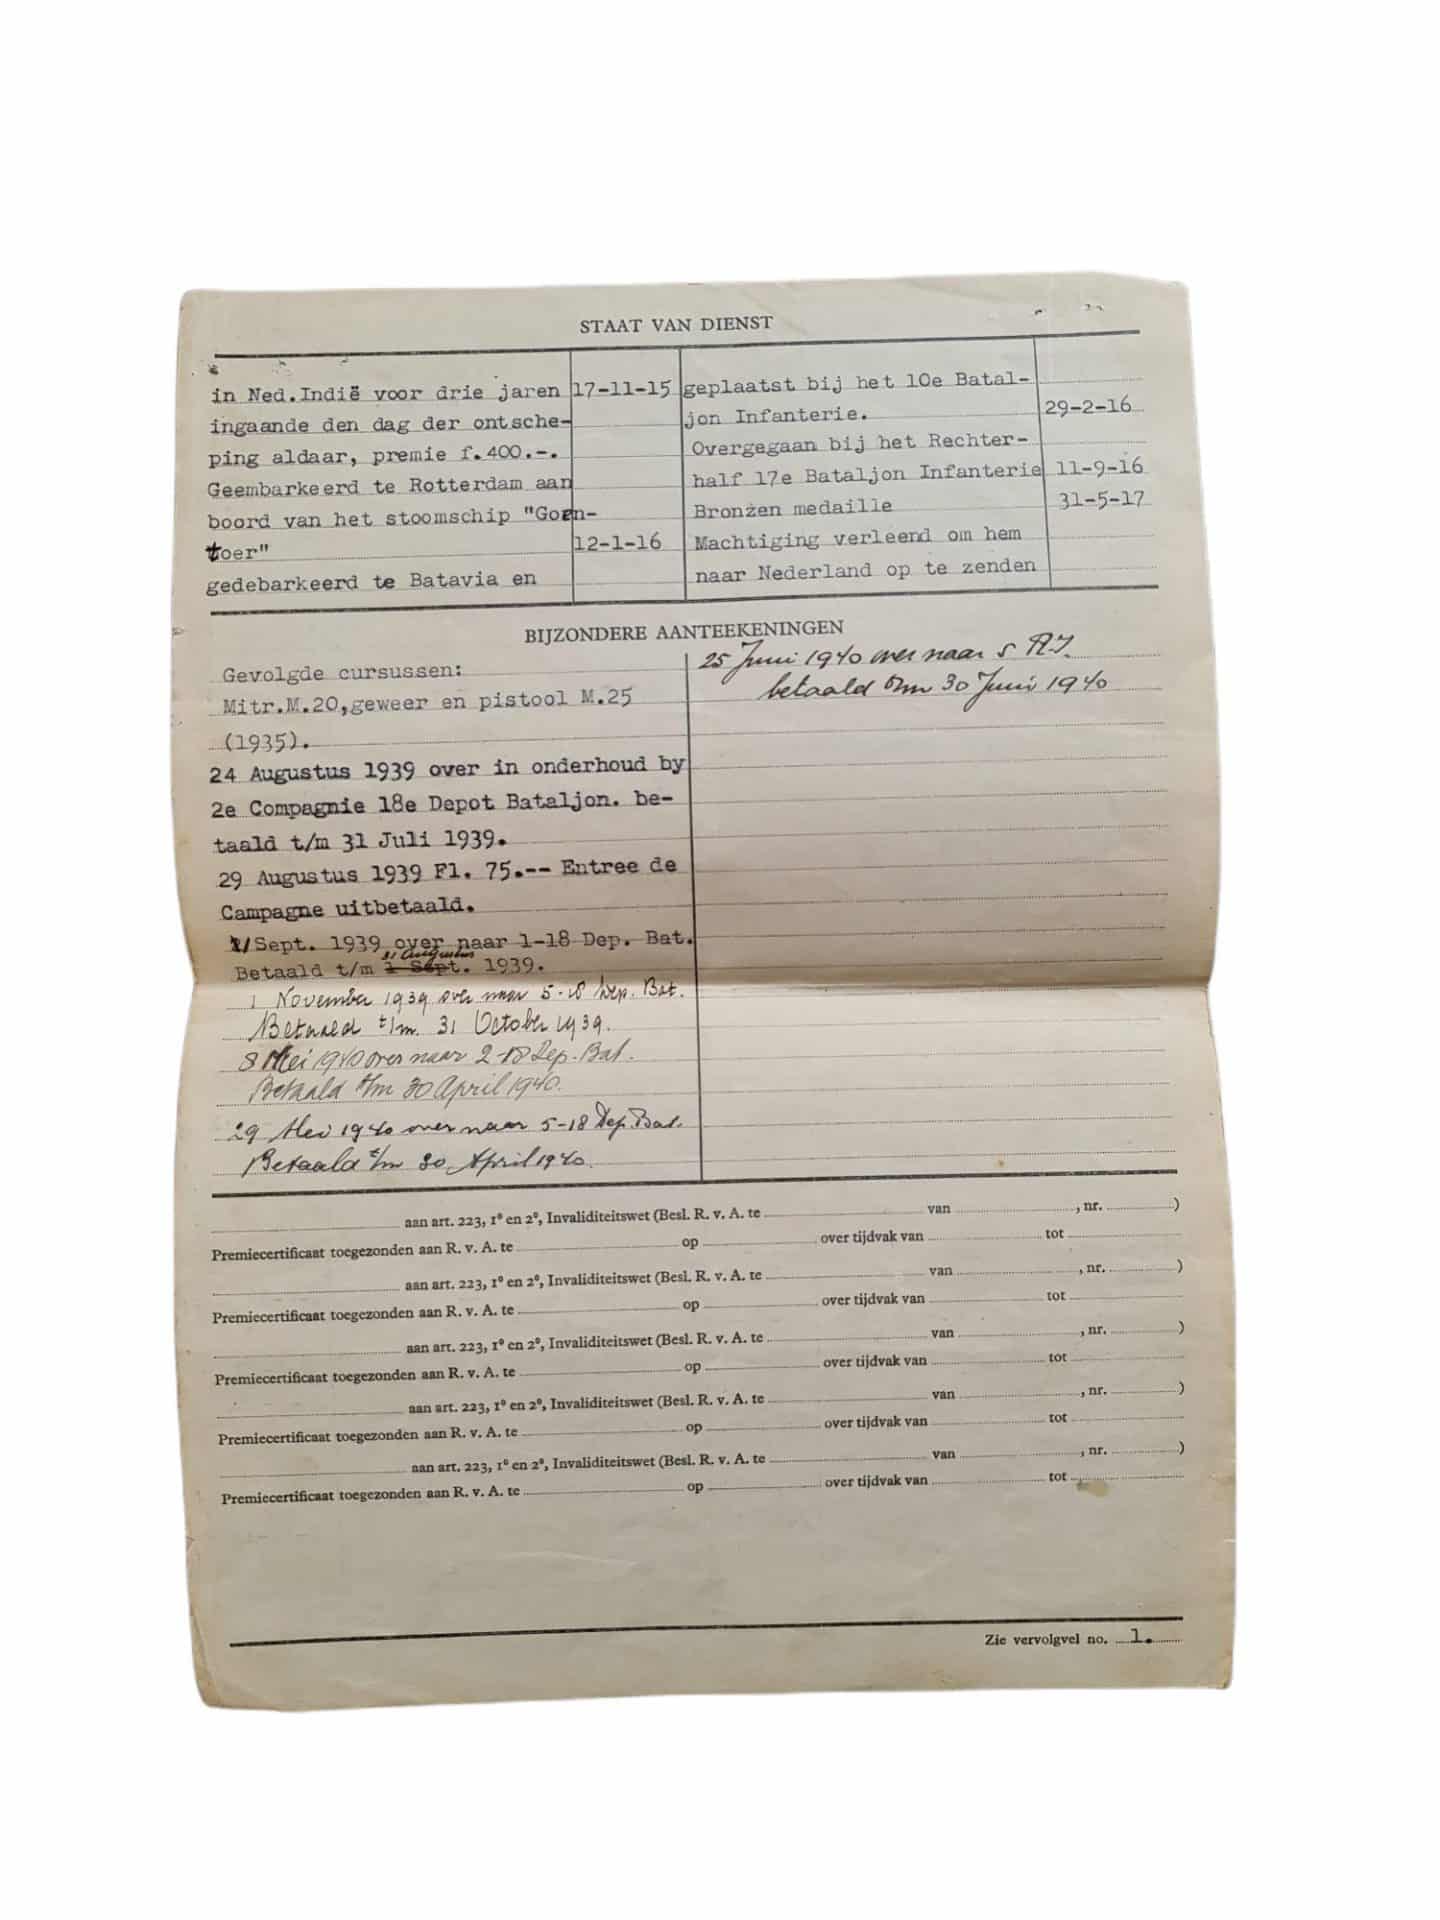 STAAT VAN DIENST
in Ned.Indië voor drie jaren 17-11-15
ingaande den dag der ontsche-
ping aldaar, premie f.400.-.
Geembarkeerd te Rotterdam aan
boord van het stoomschip "Goen-
toer" 12-1-16
gedebarkeerd te Batavia en
geplaatst bij het 10e Batal-
jon Infanterie. 29-2-16
Overgegaan bij het Rechter-
half 17e Bataljon Infanterie 11-9-16
Bronzen medaille 31-5-17
Machtiging verleend om hem
naar Nederland op te zenden
BIJZONDERE AANTEEKENINGEN
Gevolgde cursussen:
Mitr.M.20,geweer en pistool M.25
(1935).
24 Augustus 1939 over in onderhoud by
2e Compagnie 18e Depot Bataljon. be-
taald t/m 31 Juli 1939.
29 Augustus 1939 Fl. 75.-- Entree de
Campagne uitbetaald.
1/Sept. 1939 over naar 1-18 Dep. Bat.
31 Augustus
Betaald t/m 1 Sept. 1939.
1 November 1939 over naar 5-18 Dep. Bat.
Betaald t/m. 31 October 1939.
8 Mei 1940 over naar 2-18 Dep. Bat.
Betaald t/m 30 April 1940.
29 Mei 1940 over naar 5-18 Dep. Bat.
Betaald t/m 30 April 1940.
25 Juni 1940 over naar
betaald t/m 30 Juni 1940
aan art. 223, 1° en 2°, Invaliditeitswet (Besl. R. v. A. te van , nr. )
Premiecertificaat toegezonden aan R. v. A. te op over tijdvak van tot
aan art. 223, 1° en 2°, Invaliditeitswet (Besl. R. v. A. te van , nr. )
Premiecertificaat toegezonden aan R. v. A. te op over tijdvak van tot
aan art. 223, 1° en 2°, Invaliditeitswet (Besl. R. v. A. te van , nr. )
Premiecertificaat toegezonden aan R. v. A. te op over tijdvak van tot
aan art. 223, 1° en 2°, Invaliditeitswet (Besl. R. v. A. te van , nr. )
Premiecertificaat toegezonden aan R. v. A. te op over tijdvak van tot
aan art. 223, 1° en 2°, Invaliditeitswet (Besl. R. v. A. te van , nr. )
Premiecertificaat toegezonden aan R. v. A. te op over tijdvak van tot
Zie vervolgvel no. 1.